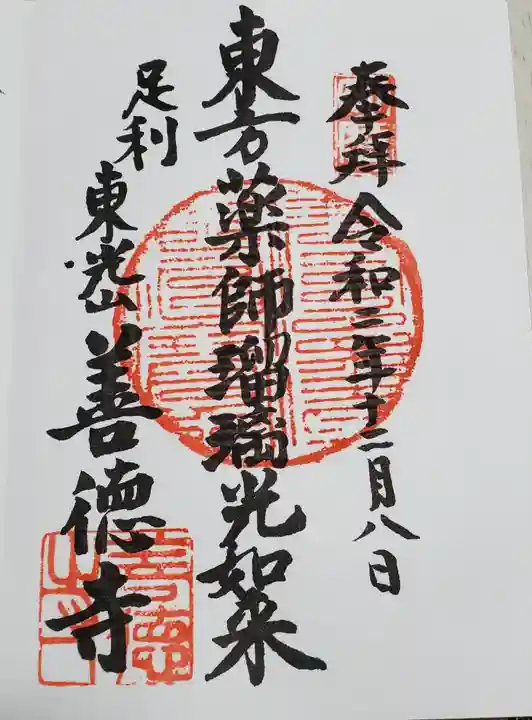 奉拝 令和三年十二月八日
東方薬師瑠璃光如来
足利
東光山 善徳寺